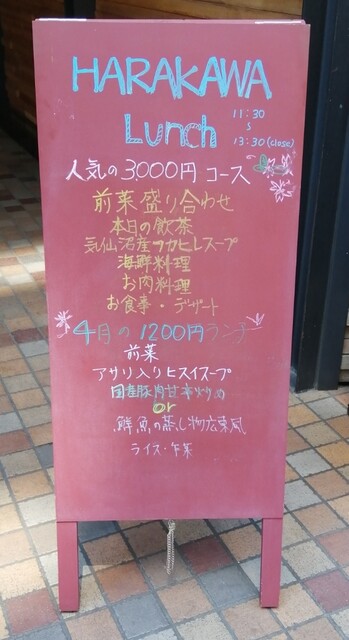 HARAKAWA
Lunch
11:30
〜
13:30(close)
人気の3,000円コース
前菜盛り合わせ
本日の飲茶
気仙沼産フカヒレスープ
海鮮料理
お肉料理
お食事・デザート
4月の1200円ランチ
前菜
アサリ入りヒスイスープ
国産豚肉甘辛炒め
or
鮮魚の蒸し物広東風
ライス・